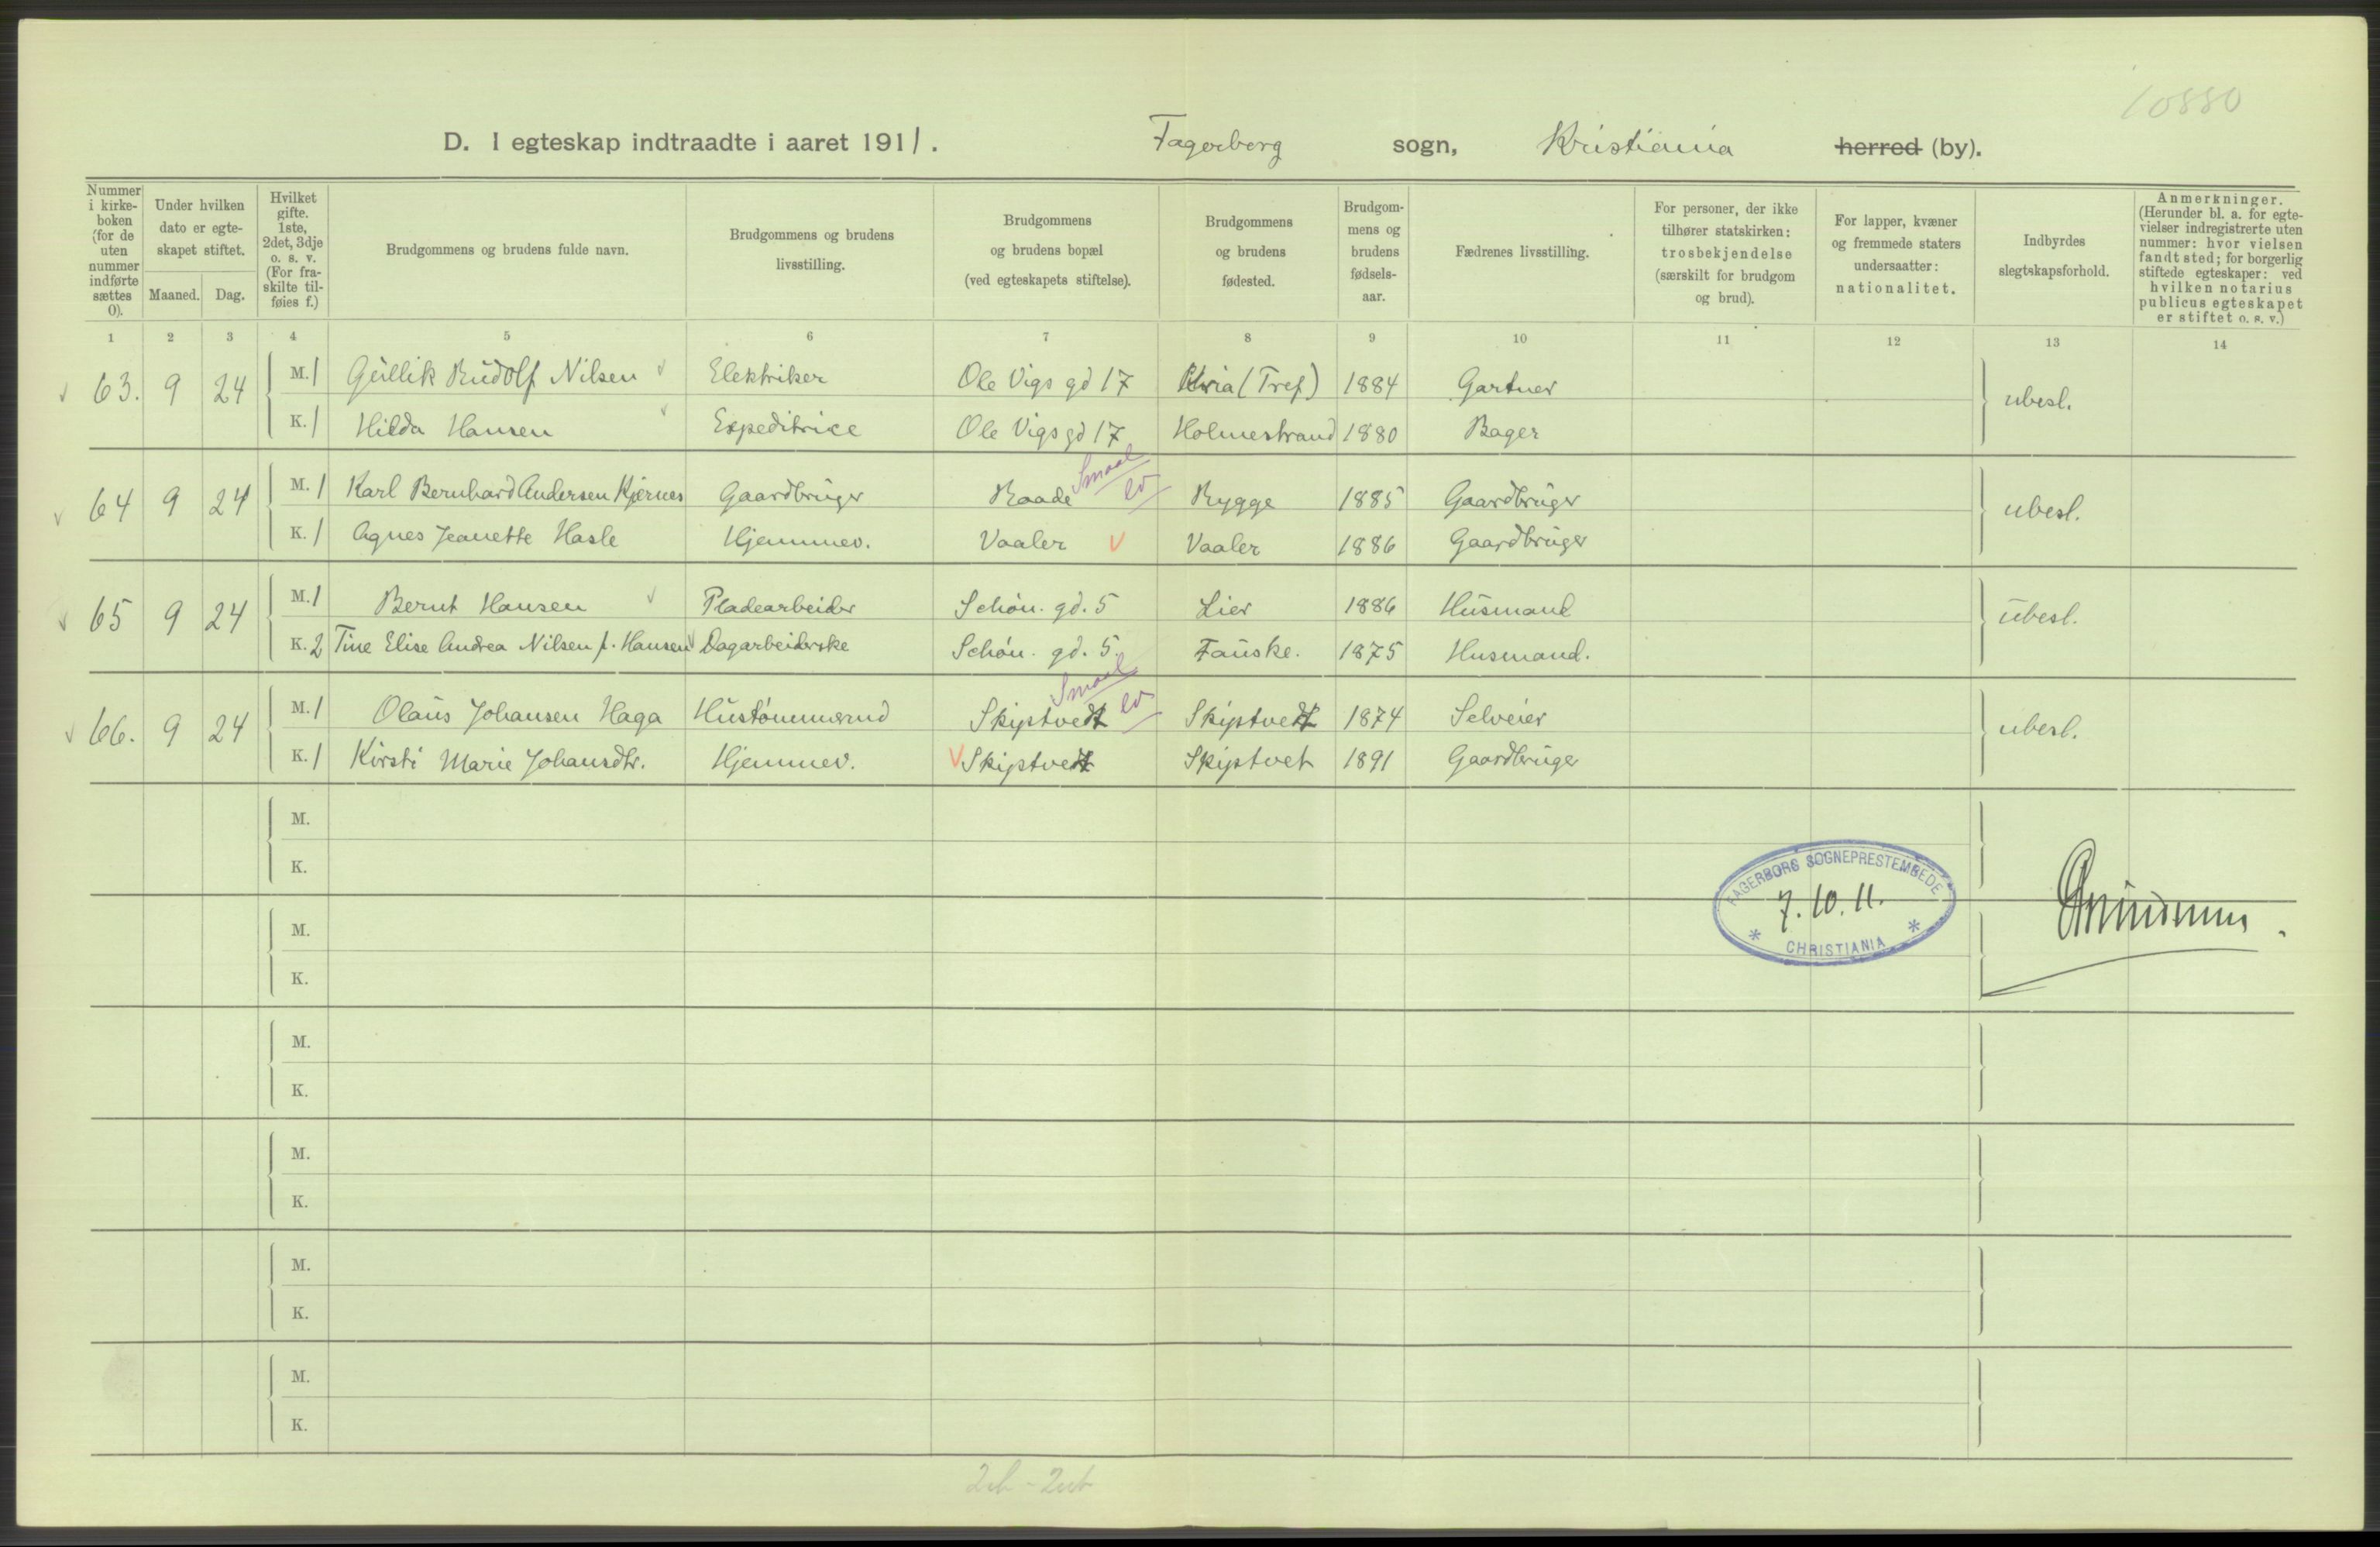 10880
D. I egteskap indtraadte i aaret 1911. Fagerborg sogn, Kristiania herred (by).
Nummer i kirkeboken (for de uten nummer indførte sættes 0).
Under hvilken dato er egteskapet stiftet.
Maaned. Dag.
Hvilket gifte. 1ste, 2det, 3dje o. s. v. (For fraskilte tilføies f.)
Brudgommens og brudens fulde navn.
Brudgommens og brudens livsstilling.
Brudgommens og brudens bopæl (ved egteskapets stiftelse).
Brudgommens og brudens fødested.
Brudgommens og brudens fødselsaar.
Fædrenes livsstilling.
For personer, der ikke tilhører statskirken: trosbekjendelse (særskilt for brudgom og brud).
For lapper, kvæner og fremmede staters undersaatter: nationalitet.
Indbyrdes slegtskapsforhold.
Anmerkninger. (Herunder bl. a. for egtevielser indregistrerte uten nummer: hvor vielsen fandt sted; for borgerlig stiftede egteskaper: ved hvilken notarius publicus egteskapet er stiftet o. s. v.)
1 2 3 4 5 6 7 8 9 10 11 12 13 14
63. 9 24 M. 1 Gullik Rudolf Nilsen Elektriker Ole Vigs gd 17 Kria (Tref) 1884 Gartner ubesl.
K. 1 Hilda Hansen Expeditrice Ole Vigs gd 17 Holmestrand 1880 Bager
Smaal
64 9 24 M. 1 Karl Bernhard Andersen Kjernes Gaardbruger Raade Rygge 1885 Gaardbruger ubesl.
K. 1 Agnes Jeanette Hasle Hjemmev. Vaaler Vaaler 1886 Gaardbruger
65 9 24 M. 1 Bernt Hansen Pladearbeider Schøn. gd. 5 Lier 1886 Husmand ubesl.
K. 2 Tine Elise Andrea Nilsen f. Hansen Dagarbeiderske Schøn. gd. 5. Fauske. 1875 Husmand.
Smaal
66. 9 24 M. 1 Olaus Johansen Haga Hustømmermd Skiptvedt Skiptvedt 1874 Selveier ubesl.
K. 1 Kirsti Marie Johansdtr. Hjemmev. Skiptvedt Skiptvet 1891 Gaardbruger
M.
K.
FAGERBORG SOGNEPRESTEMBEDE
7.10.11.
* CHRISTIANIA *
M.
K.
M.
K.
M.
K.
M.
K.
M.
K.